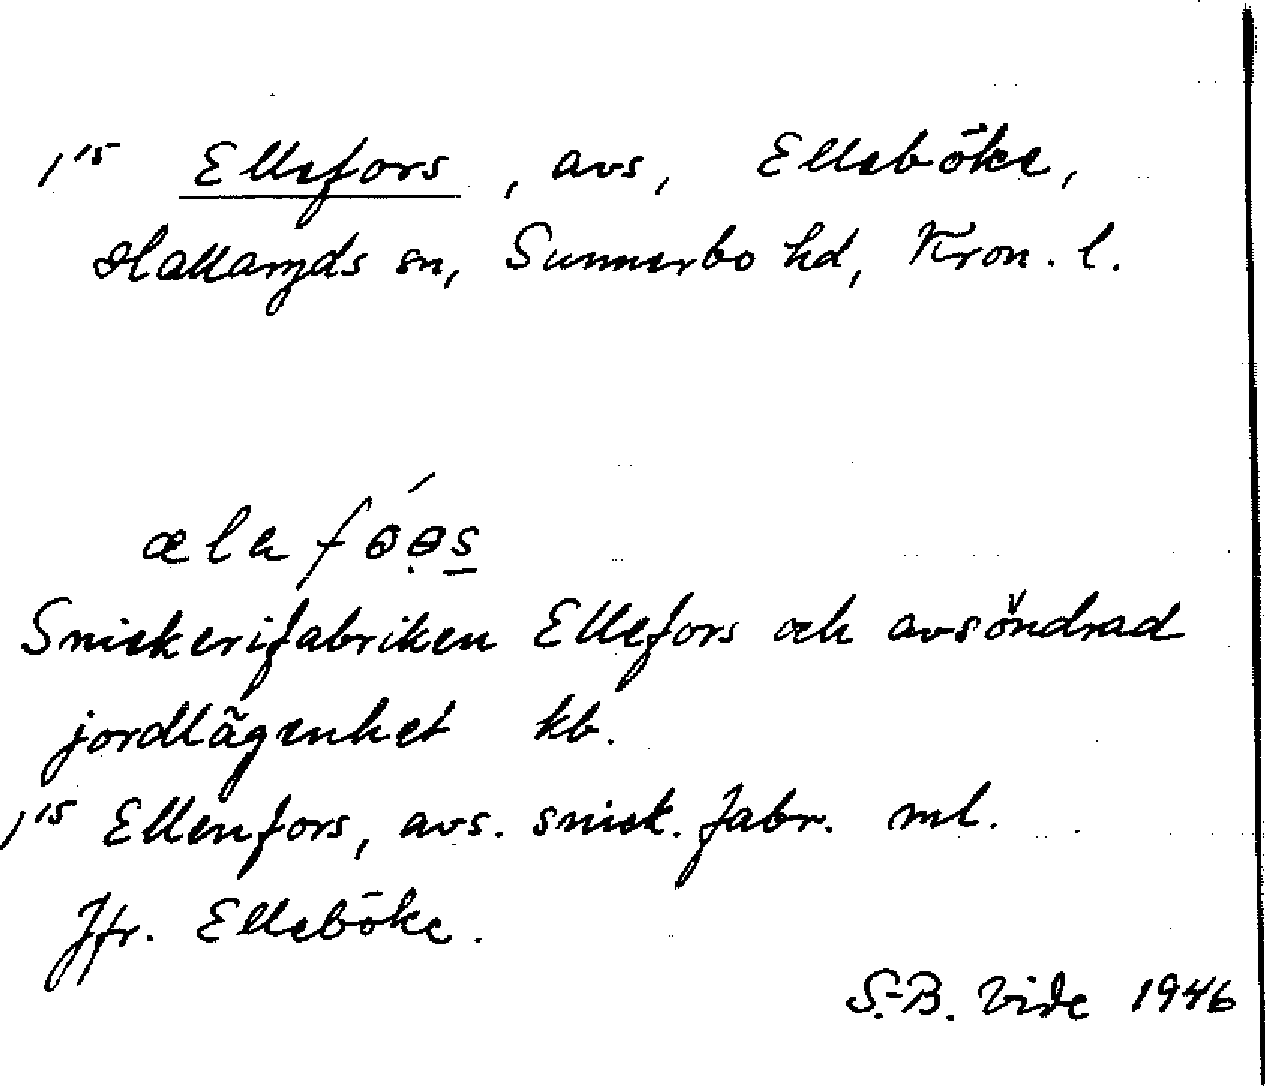 1¹⁵ Ellefors, avs, Elleböke,
Hallaryds sn, Sunnerbo hd, Kron. l.
Snickerifabriken Ellefors och avsöndrad
jordlägenhet kb.
1¹⁵ Ellenfors, avs. snick. fabr. ml.
Jfr. Elleböke.
S.-B. Vide 1946